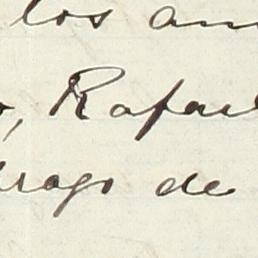 los am
o, Rafael
rago de